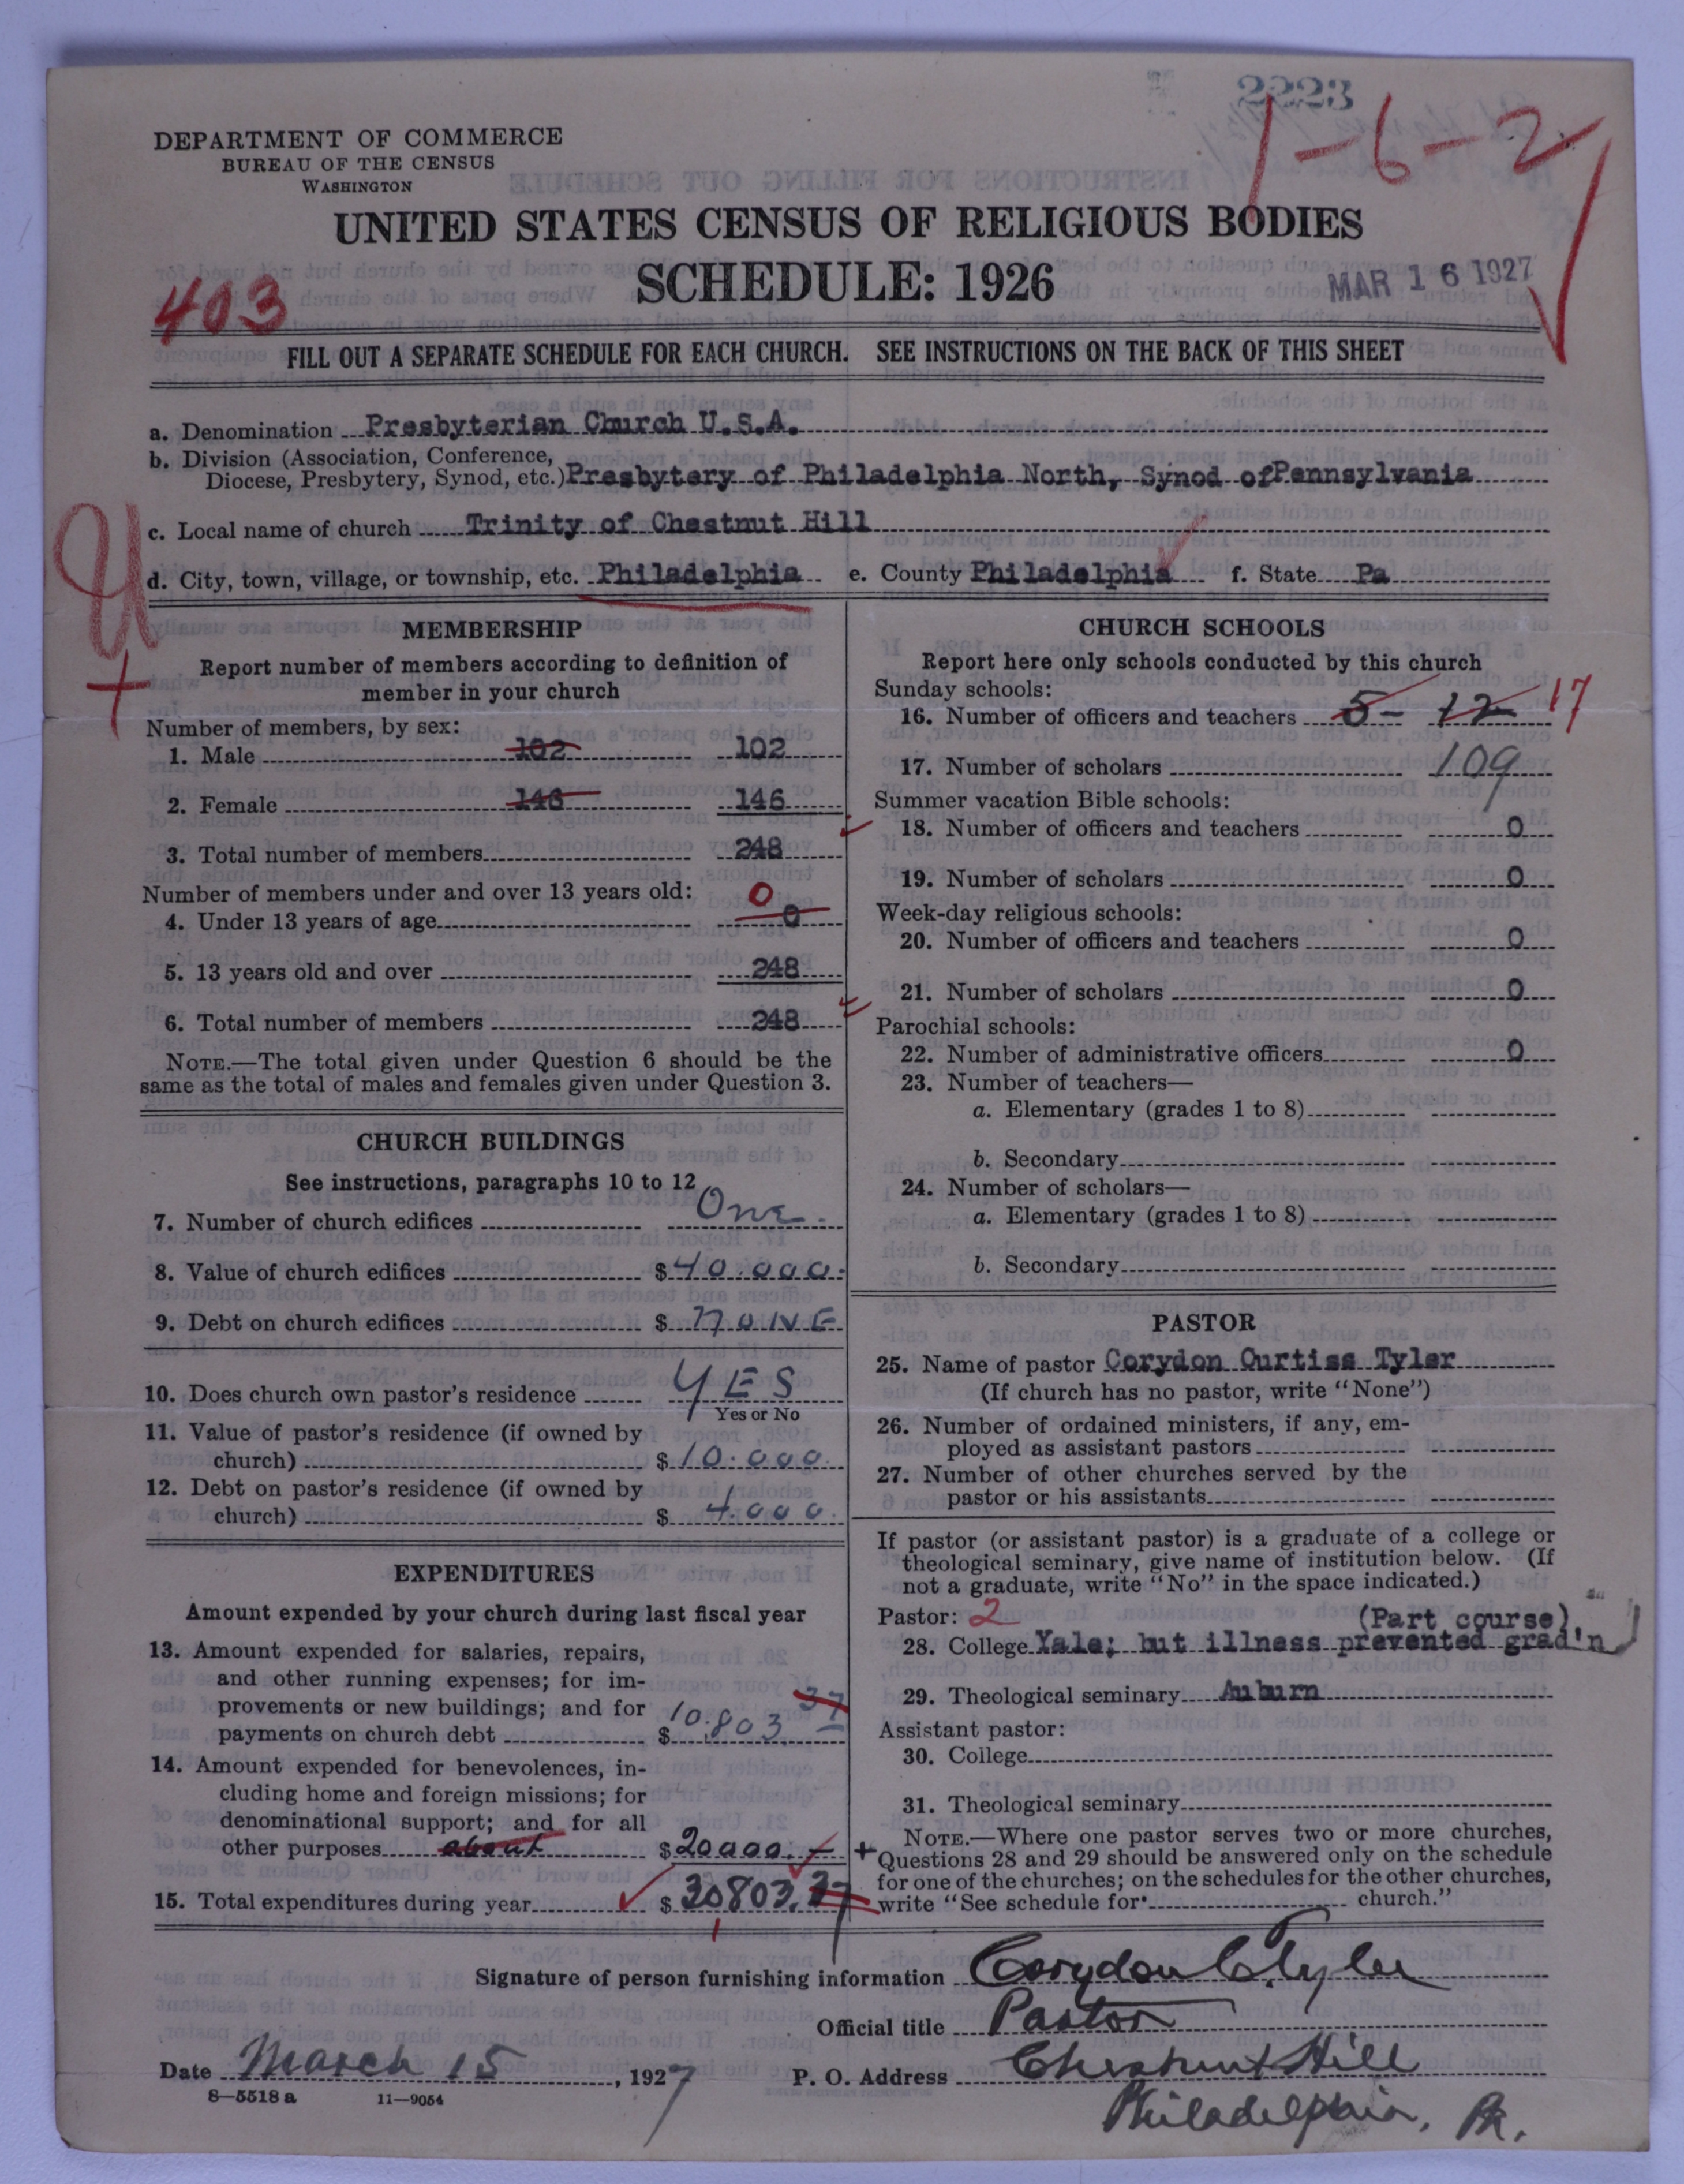 2223
1-6-2
DEPARTMENT OF COMMERCE
BUREAU OF THE CENSUS
WASHINGTON
UNITED STATES CENSUS OF RELIGIOUS BODIES
SCHEDULE: 1926
MAR 16 1927
403
FILL OUT A SEPARATE SCHEDULE FOR EACH CHURCH. SEE INSTRUCTIONS ON THE BACK OF THIS SHEET
a. Denomination Presbyterian Church U.S.A.
b. Division (Association, Conference,
Diocese, Presbytery, Synod, etc.) Presbytery of Philadelphia North, Synod of Pennsylvania
c. Local name of church Trinity of Chestnut Hill
d. City, town, village, or township, etc. Philadelphia e. County Philadelphia f. State Pa
MEMBERSHIP
Report number of members according to definition of
member in your church
Number of members, by sex:
1. Male 102 102
2. Female 146 146
3. Total number of members 248
Number of members under and over 13 years old: 0
4. Under 13 years of age 0
5. 13 years old and over 248
6. Total number of members 248
NOTE.—The total given under Question 6 should be the
same as the total of males and females given under Question 3.
CHURCH BUILDINGS
See instructions, paragraphs 10 to 12
7. Number of church edifices One
8. Value of church edifices $40.000.
9. Debt on church edifices $ NONE
10. Does church own pastor's residence YES
Yes or No
11. Value of pastor's residence (if owned by
church) $10.000.
12. Debt on pastor's residence (if owned by
church) $ 4.000.
EXPENDITURES
Amount expended by your church during last fiscal year
13. Amount expended for salaries, repairs,
and other running expenses; for im-
provements or new buildings; and for
payments on church debt $10.803.37
14. Amount expended for benevolences, in-
cluding home and foreign missions; for
denominational support; and for all
other purposes about $20000.—
15. Total expenditures during year $30803.37
CHURCH SCHOOLS
Report here only schools conducted by this church
Sunday schools:
16. Number of officers and teachers 5- 12 17
17. Number of scholars 109
Summer vacation Bible schools:
18. Number of officers and teachers 0
19. Number of scholars 0
Week-day religious schools:
20. Number of officers and teachers 0
21. Number of scholars 0
Parochial schools:
22. Number of administrative officers 0
23. Number of teachers—
a. Elementary (grades 1 to 8)
b. Secondary
24. Number of scholars—
a. Elementary (grades 1 to 8)
b. Secondary
PASTOR
25. Name of pastor Corydon Curtiss Tyler
(If church has no pastor, write "None")
26. Number of ordained ministers, if any, em-
ployed as assistant pastors
27. Number of other churches served by the
pastor or his assistants
If pastor (or assistant pastor) is a graduate of a college or
theological seminary, give name of institution below. (If
not a graduate, write "No" in the space indicated.)
Pastor: 2 (Part course)
28. College Yale; but illness prevented grad'n
29. Theological seminary Auburn
Assistant pastor:
30. College
31. Theological seminary
NOTE.—Where one pastor serves two or more churches,
Questions 28 and 29 should be answered only on the schedule
for one of the churches; on the schedules for the other churches,
write "See schedule for church."
Signature of person furnishing information Corydon C. Tyler
Official title Pastor
Date March 15, 1927 P. O. Address Chestnut Hill
8—5518 a 11—9054
Philadelphia, Pa.